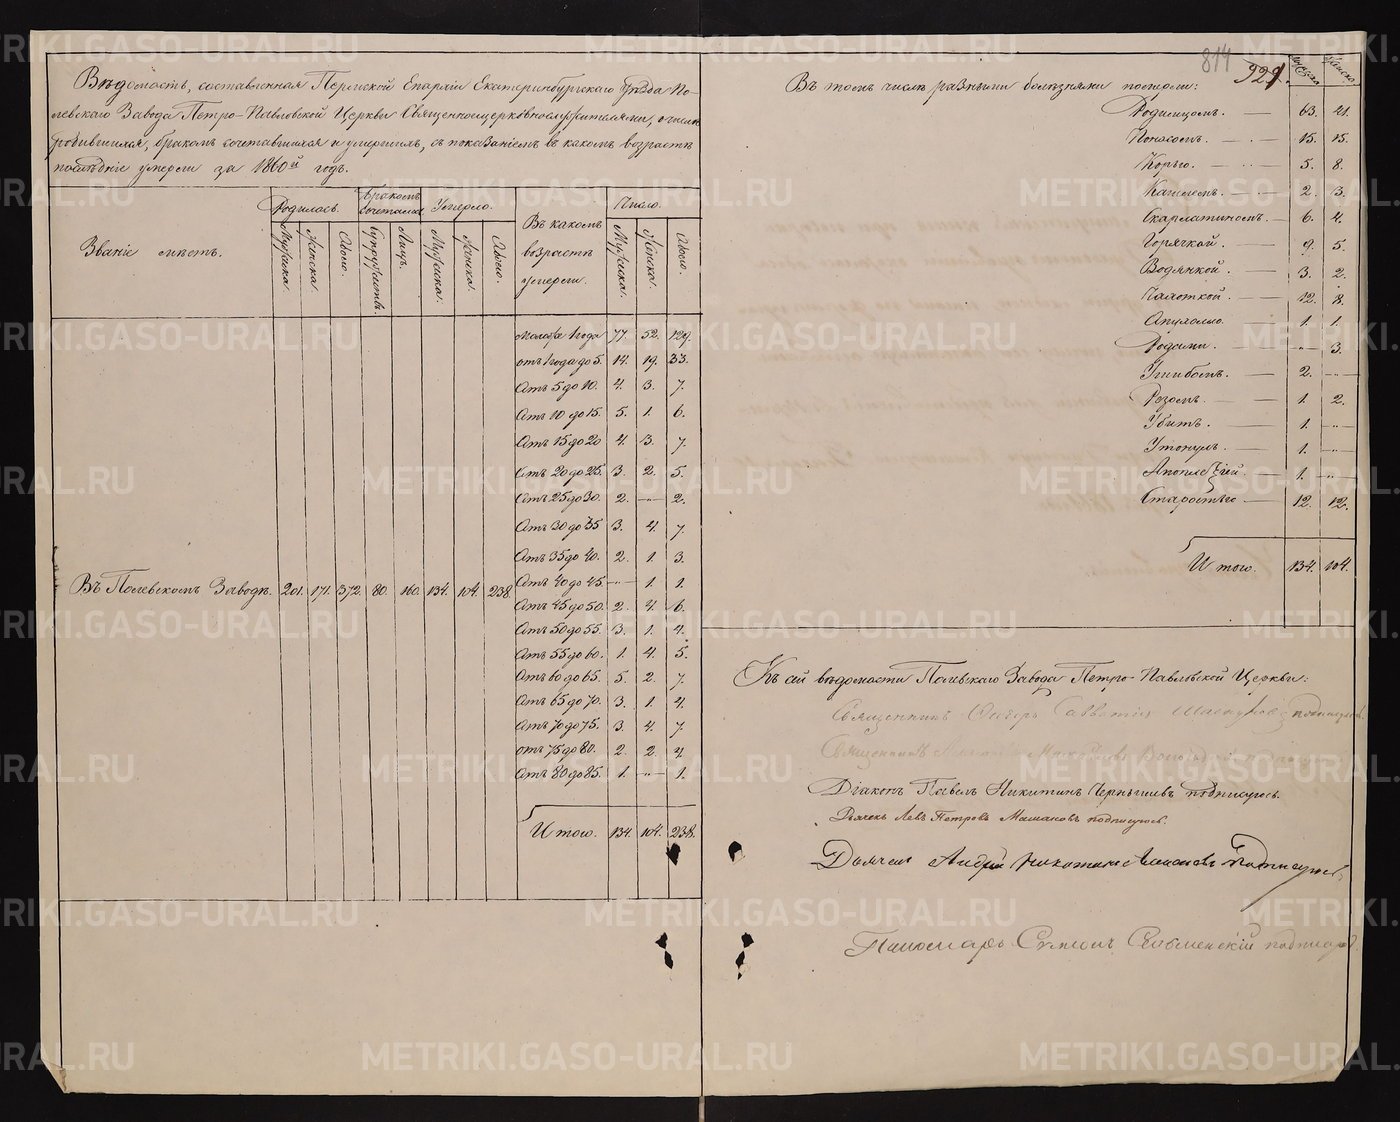 Вѣдомость, составленная Пермской Епархіи Екатеринбургскаго Уѣзда По-
левскаго Завода Петро-Павловской Церкви Священноцерковнослужителями, о числѣ
родившихся, бракомъ сочетавшихся и умершихъ, съ показаніемъ въ какомъ возрастѣ
послѣдніе умерли за 1860й годъ.
Званіе мѣстъ.
Родилось. Бракомъ сочеталось Умерло. Въ какомъ возрастѣ умерли. Число.
Мужска. Женска. Обоего. Супружествъ. Лицъ. Мужска. Женска. Обоего. Мужска. Женска. Обоего.
моложе 1 года 77. 52. 129.
отъ 1 года до 5. 14. 19. 33.
Отъ 5 до 10. 4. 3. 7.
Отъ 10 до 15. 5. 1. 6.
Отъ 15 до 20 4. 3. 7.
Отъ 20 до 25. 3. 2. 5.
Отъ 25 до 30. 2. — 2.
Отъ 30 до 35 3. 4. 7.
Отъ 35 до 40. 2. 1. 3.
Отъ 40 до 45. — 1. 1.
Въ Полевскомъ Заводѣ. 201. 171. 372. 80. 160. 134. 104. 238.
Отъ 45 до 50. 2. 4. 6.
Отъ 50 до 55. 3. 1. 4.
Отъ 55 до 60. 1. 4. 5.
Отъ 60 до 65. 5. 2. 7.
Отъ 65 до 70. 3. 1. 4.
Отъ 70 до 75. 3. 4. 7.
отъ 75 до 80. 2. 2. 4.
Отъ 80 до 85. 1. — 1.
Итого. 134. 104. 238.
814
921.
Въ томъ числѣ разными болѣзнями померли:
Мужска Женска
Родимцомъ. — 63. 21.
Поносомъ. — 15. 15.
Корью. — 5. 8.
Кашлемъ. — 2. 3.
Скарлатиномъ. — 6. 4.
Горячкой. — 9. 5.
Водянкой. — 3. 2.
Чахоткой. — 12. 8.
1. 1.
Родами. — 3.
Ушибомъ. — 2. —
— 1. 2.
Убитъ. — 1. —
Утонулъ. — 1. —
Апоплексіей. — 1. —
Старостью — 12. 12.
Итого. 134. 104.
Къ сей вѣдомости Полевскаго Завода Петро-Павловской Церкви:
Священникъ подписуюсь.
Священникъ
Діаконъ Павелъ Никитинъ Чернышевъ подписуюсь.
Дьячекъ Левъ Петровъ подписуюсь.
Дьячекъ Андрей подписуюсь.
Пономарь подписуюсь
METRIKI.GASO-URAL.RU